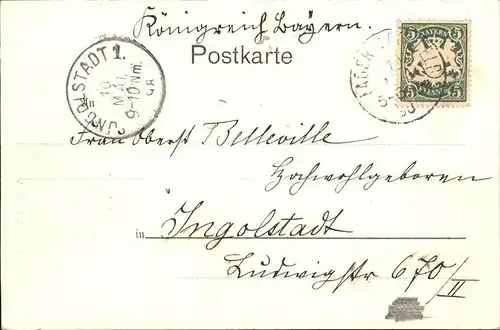 Königreich Bayern.
Postkarte
INGOLSTADT 1.
10
MAI
9-10 Nm.
98
5 BAYERN 5
5 5
An
Frau Oberst Belleville
Hochwohlgeboren
in Ingolstadt
Ludwigstr 670/II